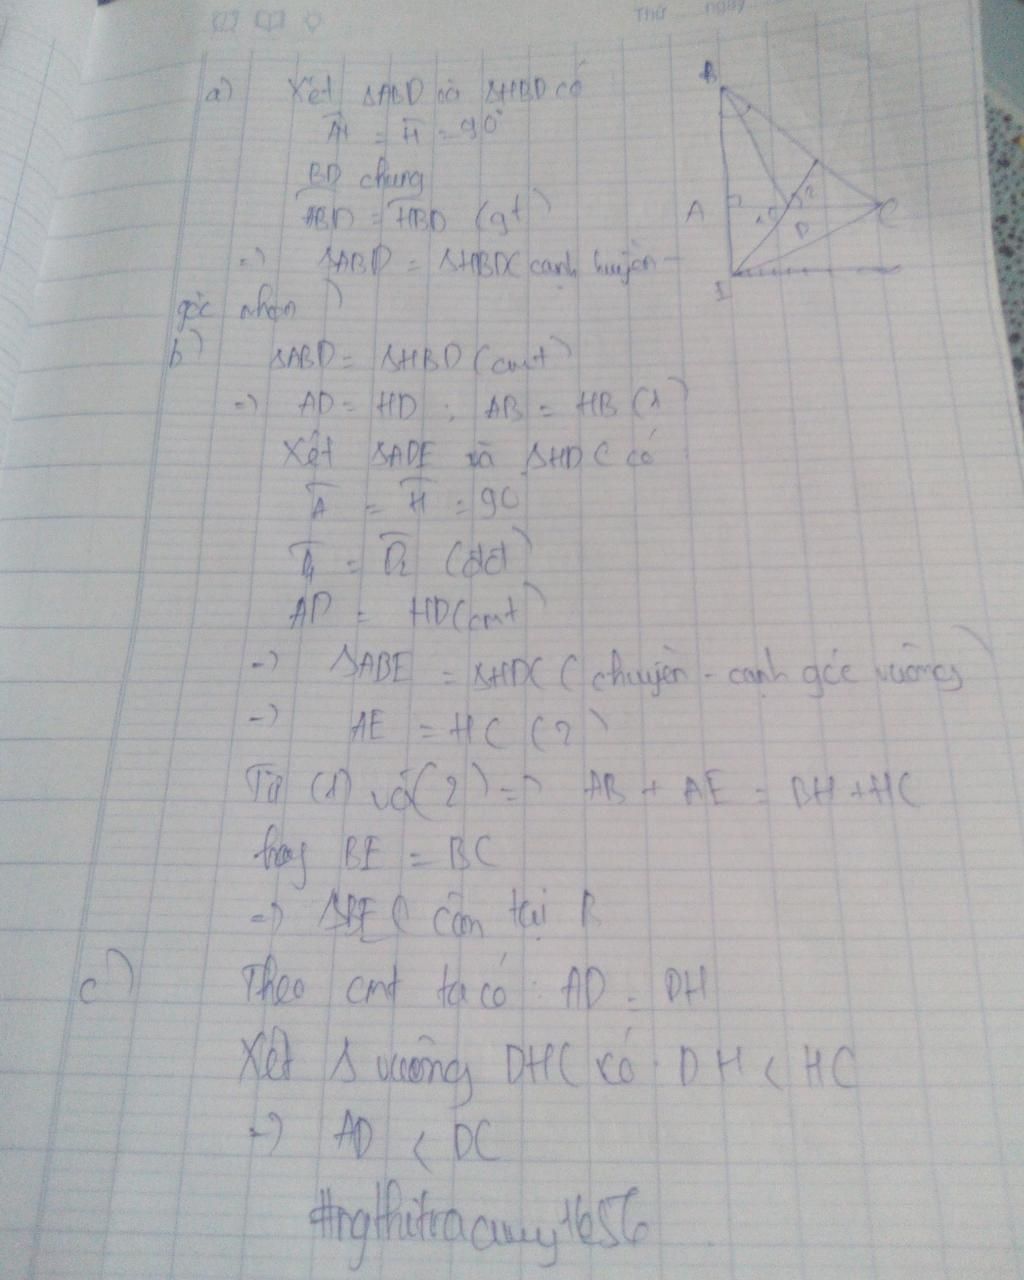 Thứ ngày
a) Xét ΔABD và ΔHBD có
A1 = H = 90°
BD chung
ABD = HBD (gt)
=> ΔABD = ΔHBD( cạnh huyền -
góc nhọn )
b) ΔABD = ΔHBD (cmt)
=> AD = HD ; AB = HB (1)
Xét ΔADE và ΔHDC có
A = H = 90
D1 = D2 (đđ)
AD = HD(cmt)
=> ΔABE = ΔHDC ( chuyền - cạnh góc vuông)
=> AE = HC (2)
Từ (1) và (2) => AB + AE = BH + HC
hay BE = BC
=> ΔBEC cân tại B
c) Theo cmt ta có : AD = DH
Xét Δ vuông DHC có : DH < HC
=> AD < DC
B
A
1 2
D
C
I